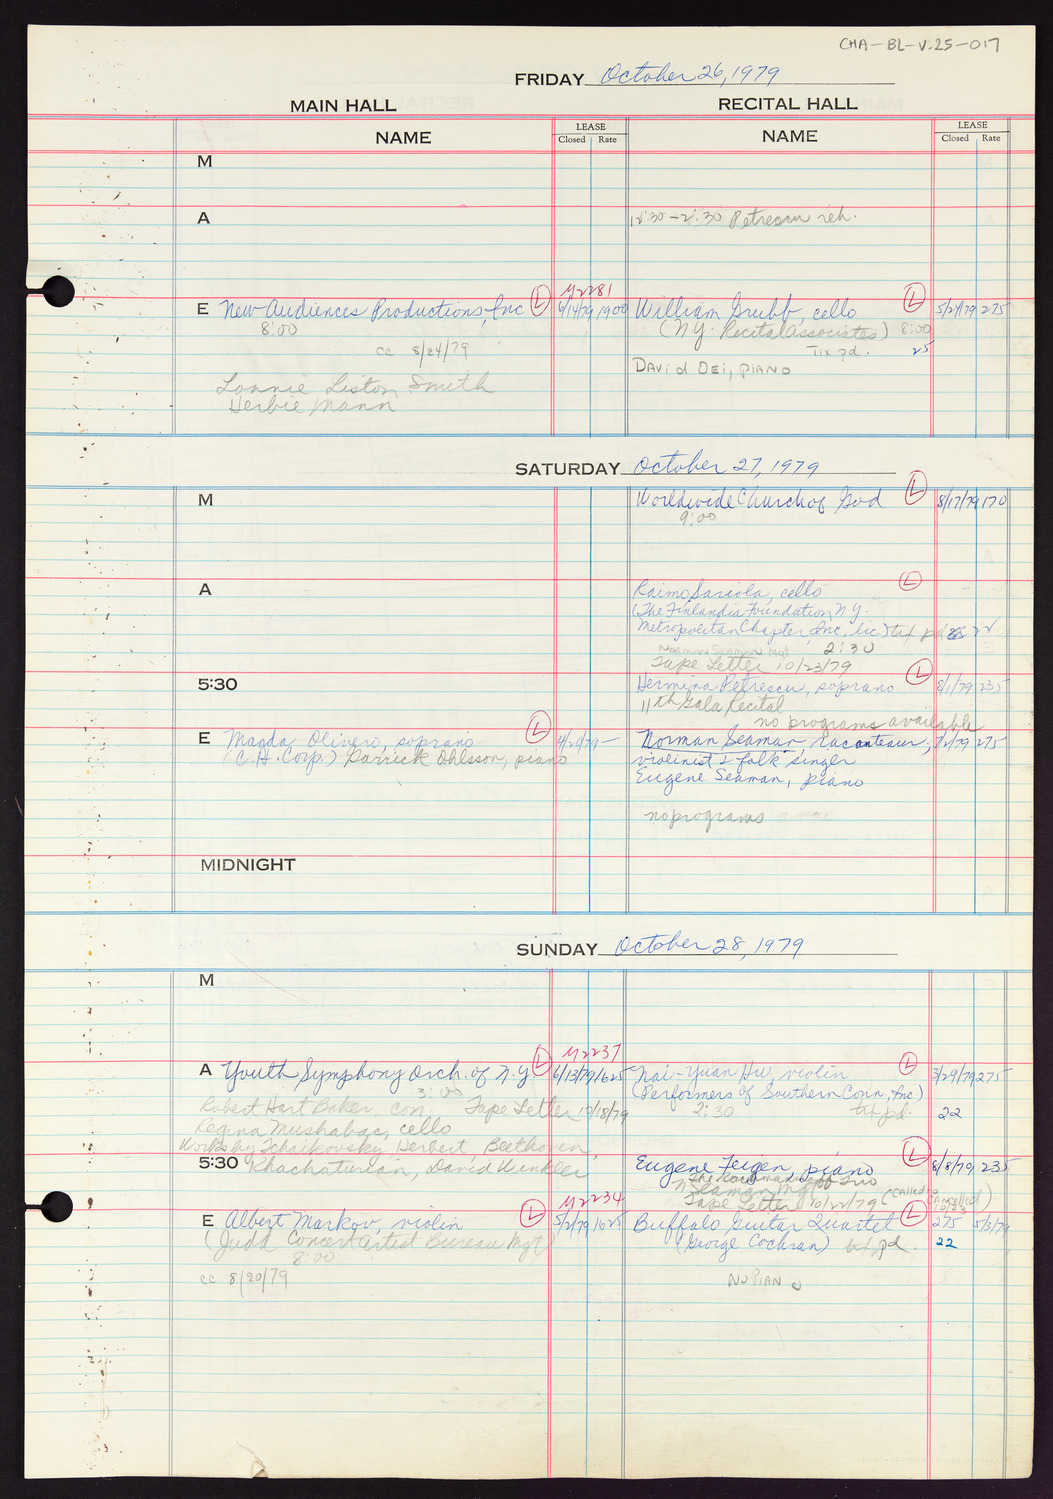 CHA-BL-V.25-017
FRIDAY October 26, 1979
MAIN HALL
RECITAL HALL
NAME
LEASE
Closed Rate
NAME
LEASE
Closed Rate
M
A
12:30-2:30 Petrescu reh.
M2281
E New Audiences Productions, Inc L 6/14/79 1900
8:00
cc 8/24/79
Lonnie Liston Smith
Herbie Mann
William Grubb, cello L 5/24/79 275
(N.Y. Recital Associates) 8:00
Tix pd. 25
DAVid DEi, PIANO
SATURDAY October 27, 1979
M
Worldwide Church of God L 8/17/79 170
9:00
A
Raimo Sariola, cello L
(The Finlandia Foundation N.Y.
Metropolitan Chapter, Inc, lic) tix pd 22
Norman Seaman Mgt 2:30
Tape Letter 10/23/79
5:30
Hermina Petrescu, soprano L 8/1/79 235
11th Gala Recital
no programs available
E Magda Olivero, soprano L
(C.H. Corp.) Garrick Ohlsson, piano
Norman Seaman, raconteur, 7/2/79 275
violinist & folk singer
Eugene Seaman, piano
no programs
MIDNIGHT
SUNDAY October 28, 1979
M
M2237
A Youth Symphony Orch. of N.Y. L 6/13/79 1625
3:00
Robert Hart Baker, con. Tape Letter 10/18/79
Regina Mushabac, cello
Works by Tchaikovsky, Herbert, Beethoven,
Khachaturian, David Winkler
Nai-Yuan Hu, violin L 3/29/79 275
(Performers of Southern Conn, Inc)
2:30 tix pd. 22
5:30
Eugene Feigen, piano L 8/8/79 235
The Rachmaninoff Trio
N Seaman Mgt
Tape Letter 10/22/79 (Called
Cancelled)
M2234
E Albert Markov, violin L 5/2/79 1625
(Judd Concert Artist Bureau Mgt)
8:00
cc 8/20/79
Buffalo Guitar Quartet L 275 5/3/79
(George Cochran) tix pd. 22
No PIANO